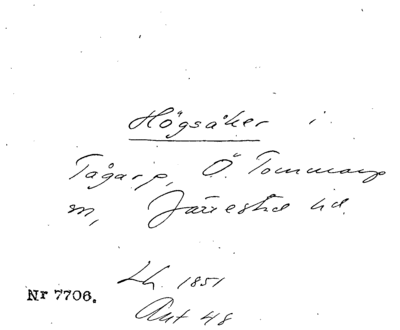 Högsåker i
Tågarp, Ö. Tommarp
m, Järrestad hd.
Lh. 1851
Akt 48
Nr 7706.